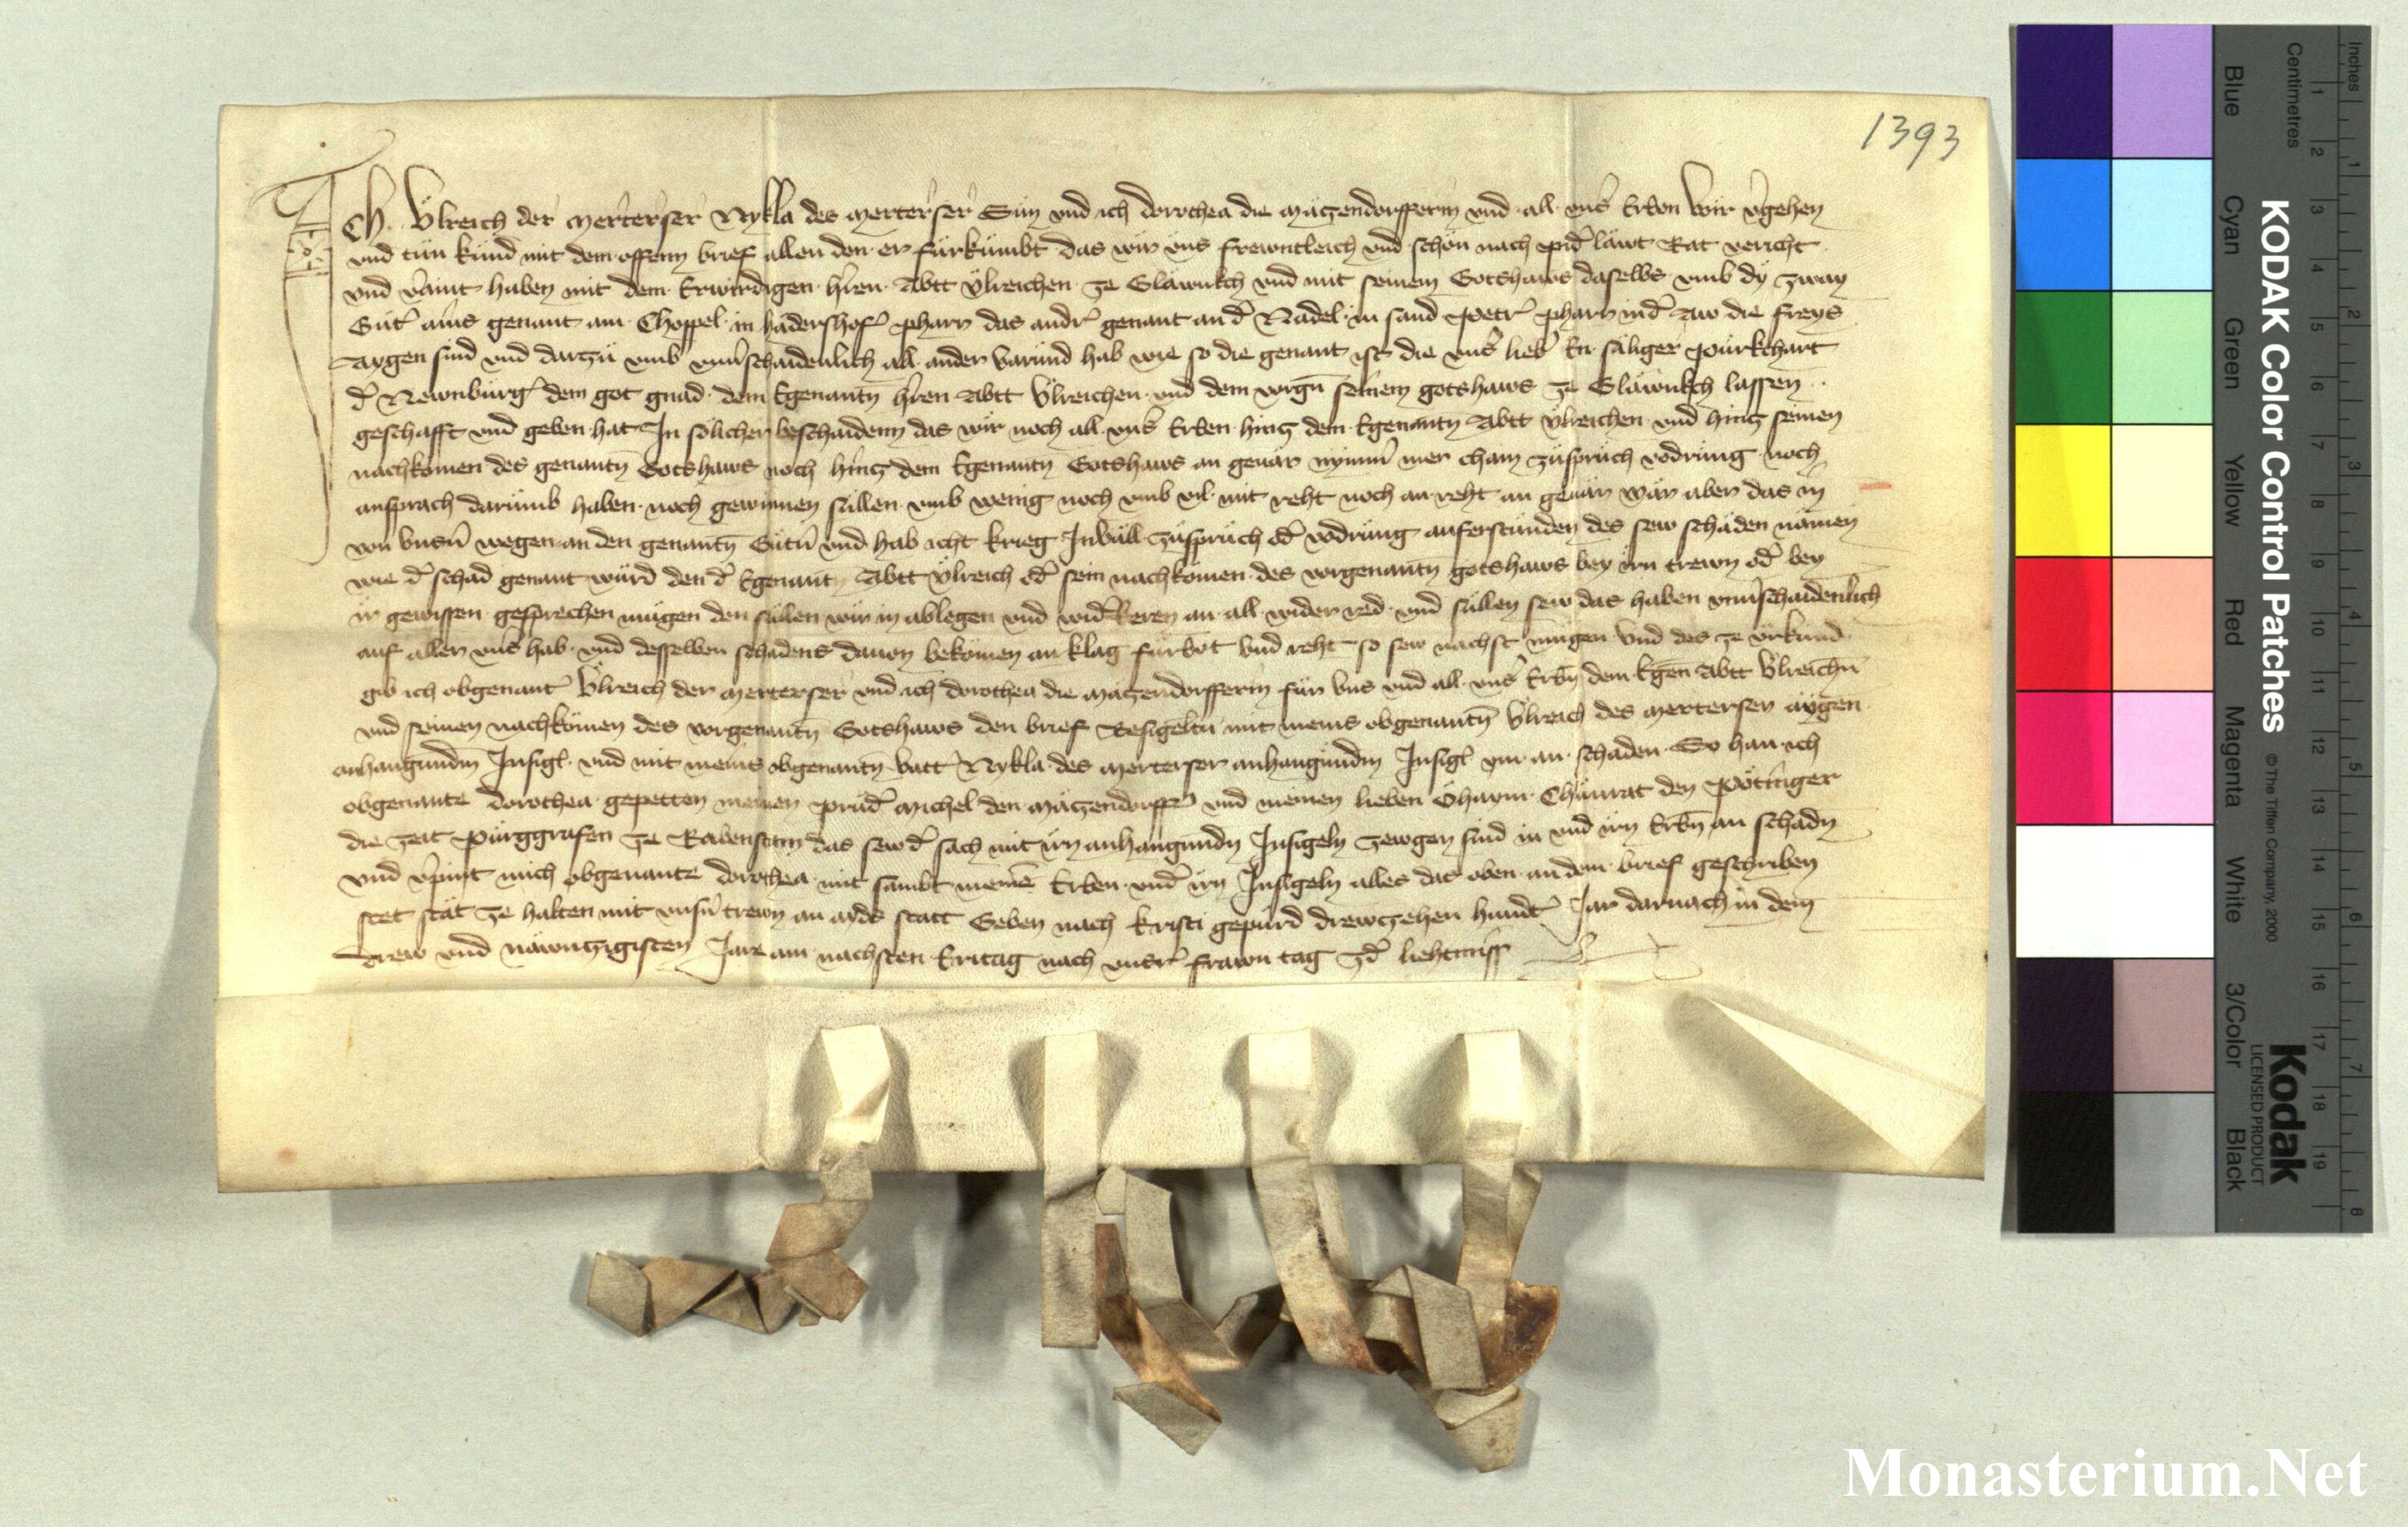 1393
Ich Ulreich der Merterser Nykla des Merterser Sun und ich dorothea die Mäczendorfferin und all uns Erben Wir vgehen
und tün kund mit dem offenn brief allen den er fürkümbt das wir uns frewntleich und schön nach pid läwt Rat vericht
und vaint haben mit dem Erwirdigen hren Abtt Ulreichen ze Gläwnkch und mit seinem Gotshaws daselbs umb dy zway
Güt ains genant am Choppel in hadershof pharr das andr genant an d Nadel in sand petr pharr in d Aw die freys
Aygen sind und darzü umb unuschaidenlich all ander varund hab wie so die genant ist die uns lieb En säliger purkchart
d Newnburg dem got gnad dem Egenantn hren Abtt Ulreichen und dem vorgn seinem gotshaws ze Gläwnkch lassen
geschafft und geben hat In sölicher beschaidenn das wir noch all uns Erben hincz dem Egenantn Abtt Ulreichen und hincz seinen
nachkomen des genantn Gotshaws noch hincz dem Egenantn Gotshaws an geuär nymm mer chain züspruch vodrung noch
ansprach darumb haben noch gewinnen süllen umb wenig noch umb vil mit reht noch an reht an geuär wär aber das in
von unsn wegen an den genantn Gütn und hab icht krieg Inuäll züsprüch od vodrung auferstünden des sew schäden nämen
wie d schad genant würd den d Egenant Abtt Ulreich od sein nachkömen des vorgenantn gotshaws bey irn trewn od bey
ir gewissen gesprechen mügen den süllen wir in ablegen und widkeren an all wider red und süllen sew das haben unuschaidenlich
auf aller uns hab und desselben schadens dauon bekömen an klag fürbot und reht so sew nachst mügen Und des ze urkund
gib ich obgenant Ulreich der Merterser und ich dorothea die Mäczendorfferin für uns und all uns Erbn dem Egen Abtt Ulreichn
und seinen nachkömen des vorgenantn Gotshaws den brief Besigeltn mit meins obgenantn Ulreich des Merterser aygen
anhangundm Insigl und mit meins obgenantn vatt Nykla des Merterser anhangundm Insigl ym an schaden So han ich
obgenante dorothea gepetten meinen prud Michel den Mäczendorffer und meinen lieben Öhaym Chünrat den Pöttinger
die zeit purggrafen ze Rabenstain das sew d sach mit irn anhangundn Insigeln zewgen sind in und irn Erbn an schadn
und vpint mich obgenante dorothea mit sambt meinen Erben und irn Insigeln alles das oben an dem brief geschriben
stet stät ze halten mit unsn trewn an aids statt Geben nach kristi gepurd drewczehen hundt Jar darnach in dem
drew und näwntzigisten Jare am nachsten Eritag nach unsr frawn tag zd liehtmiss
KODAK Color Control Patches
© The Tiffen Company, 2000
Kodak
LICENSED PRODUCT
Inches
Centimetres
Blue
Cyan
Green
Yellow
Red
Magenta
White
3/Color
Black
1 2 3 4 5 6 7 8 9 10 11 12 13 14 15 16 17 18 19
1 2 3 4 5 6 7 8
Monasterium.Net